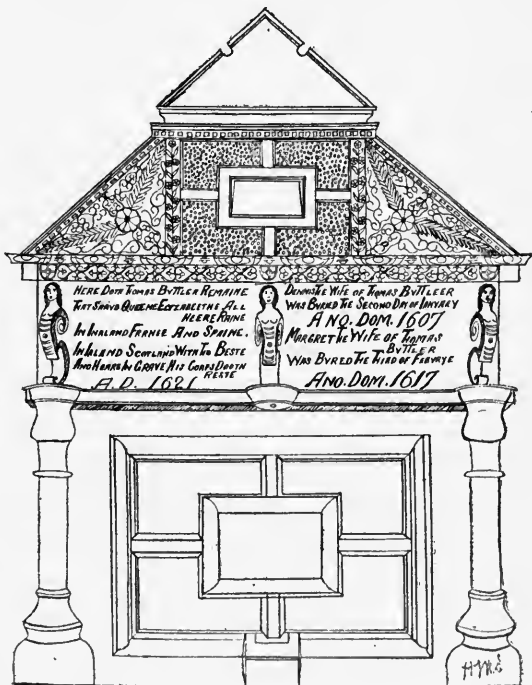 HERE DOTH THOMAS BUTTLER REMAINE
THAT SARVD QUEENE ELEZABETHE ALL
HEERE RAINE
IN INLAND FRANCE AND SPAINE,
IN INLAND SCOTLAND WITH THE BESTE
AND HEARE IN GRAVE HIS CORPS DOOTH
RESTE
A.D. 1621
DENNIS THE WIFE OF THOMAS BUTTLEER
WAS BURED THE SECOND DAY OF IANVAREY
ANO. DOM. 1607
MARGRET THE WIFE OF THOMAS
BUTTLER
WAS BVRED THE THIRD OF FEBVRYE
ANO. DOM. 1617